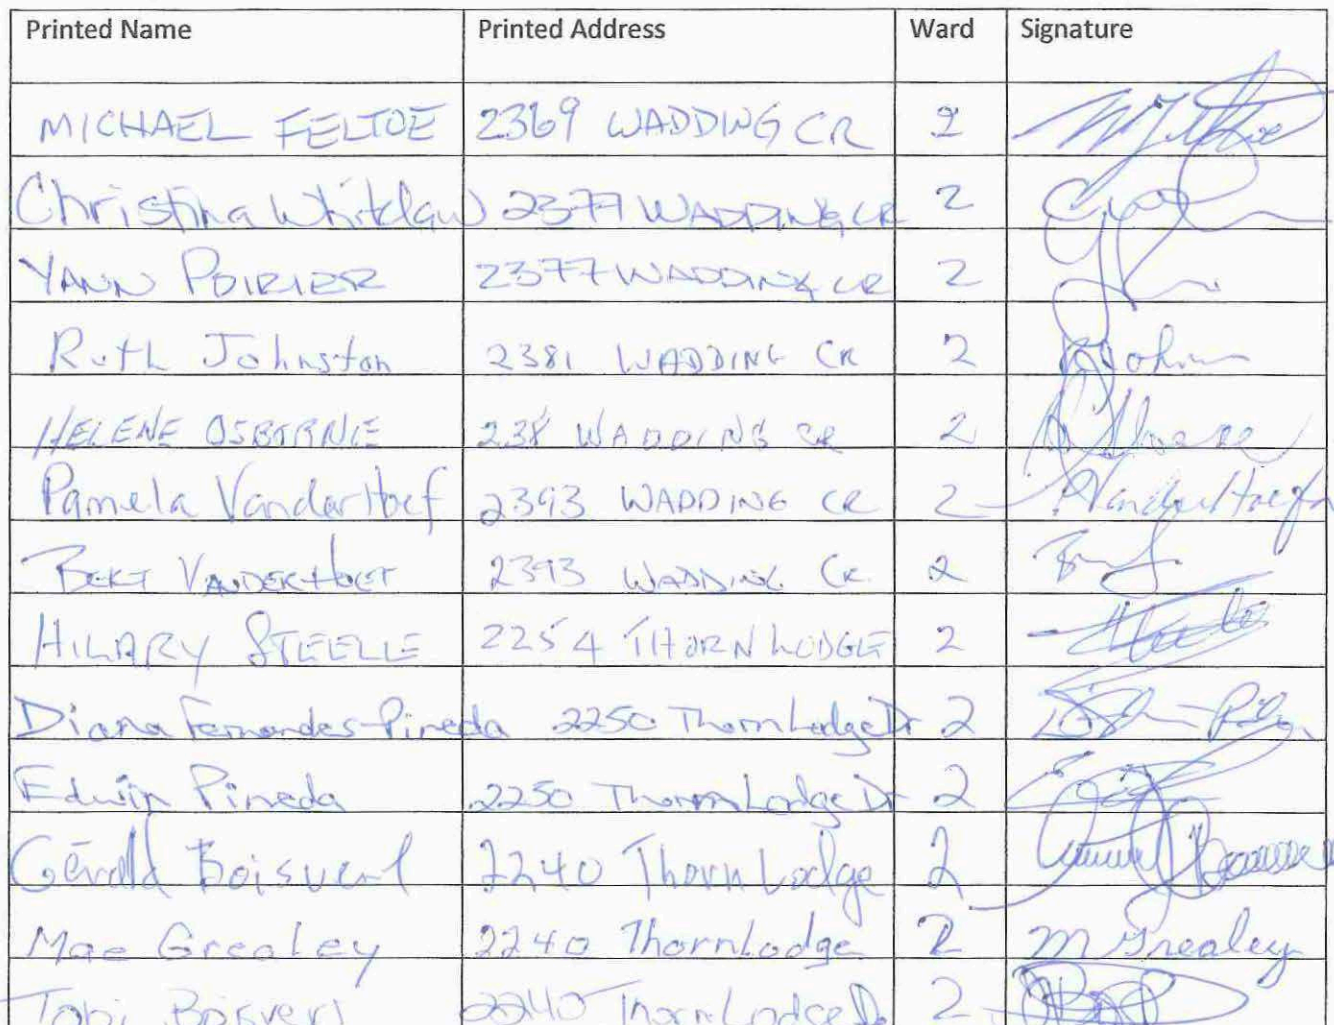 Printed Name Printed Address Ward Signature
MICHAEL FELTOE 2369 WADDING CR 2
Christina Whitelaw 2377 WADDING CR 2
YANN POIRIER 2377 WADDING CR 2
Ruth Johnston 2381 WADDING CR 2 RJohn
HELENE OSBORNE 238 WADDING CR 2
Pamela VanderHoef 2393 WADDING CR 2 PVanderHoef
BERT VANDERHOEF 2393 WADDING CR. 2
HILARY STEELLE 2254 THORN LODGE 2
Diana Fernandes-Pineda 2250 ThornLodge Dr 2
Edwin Pineda 2250 ThornLodge Dr 2
Gérald Boisvert 2240 Thorn Lodge 2
Mae Grealey 2240 ThornLodge 2 M Grealey
Tobi Boisvert 2240 ThornLodge Dr 2